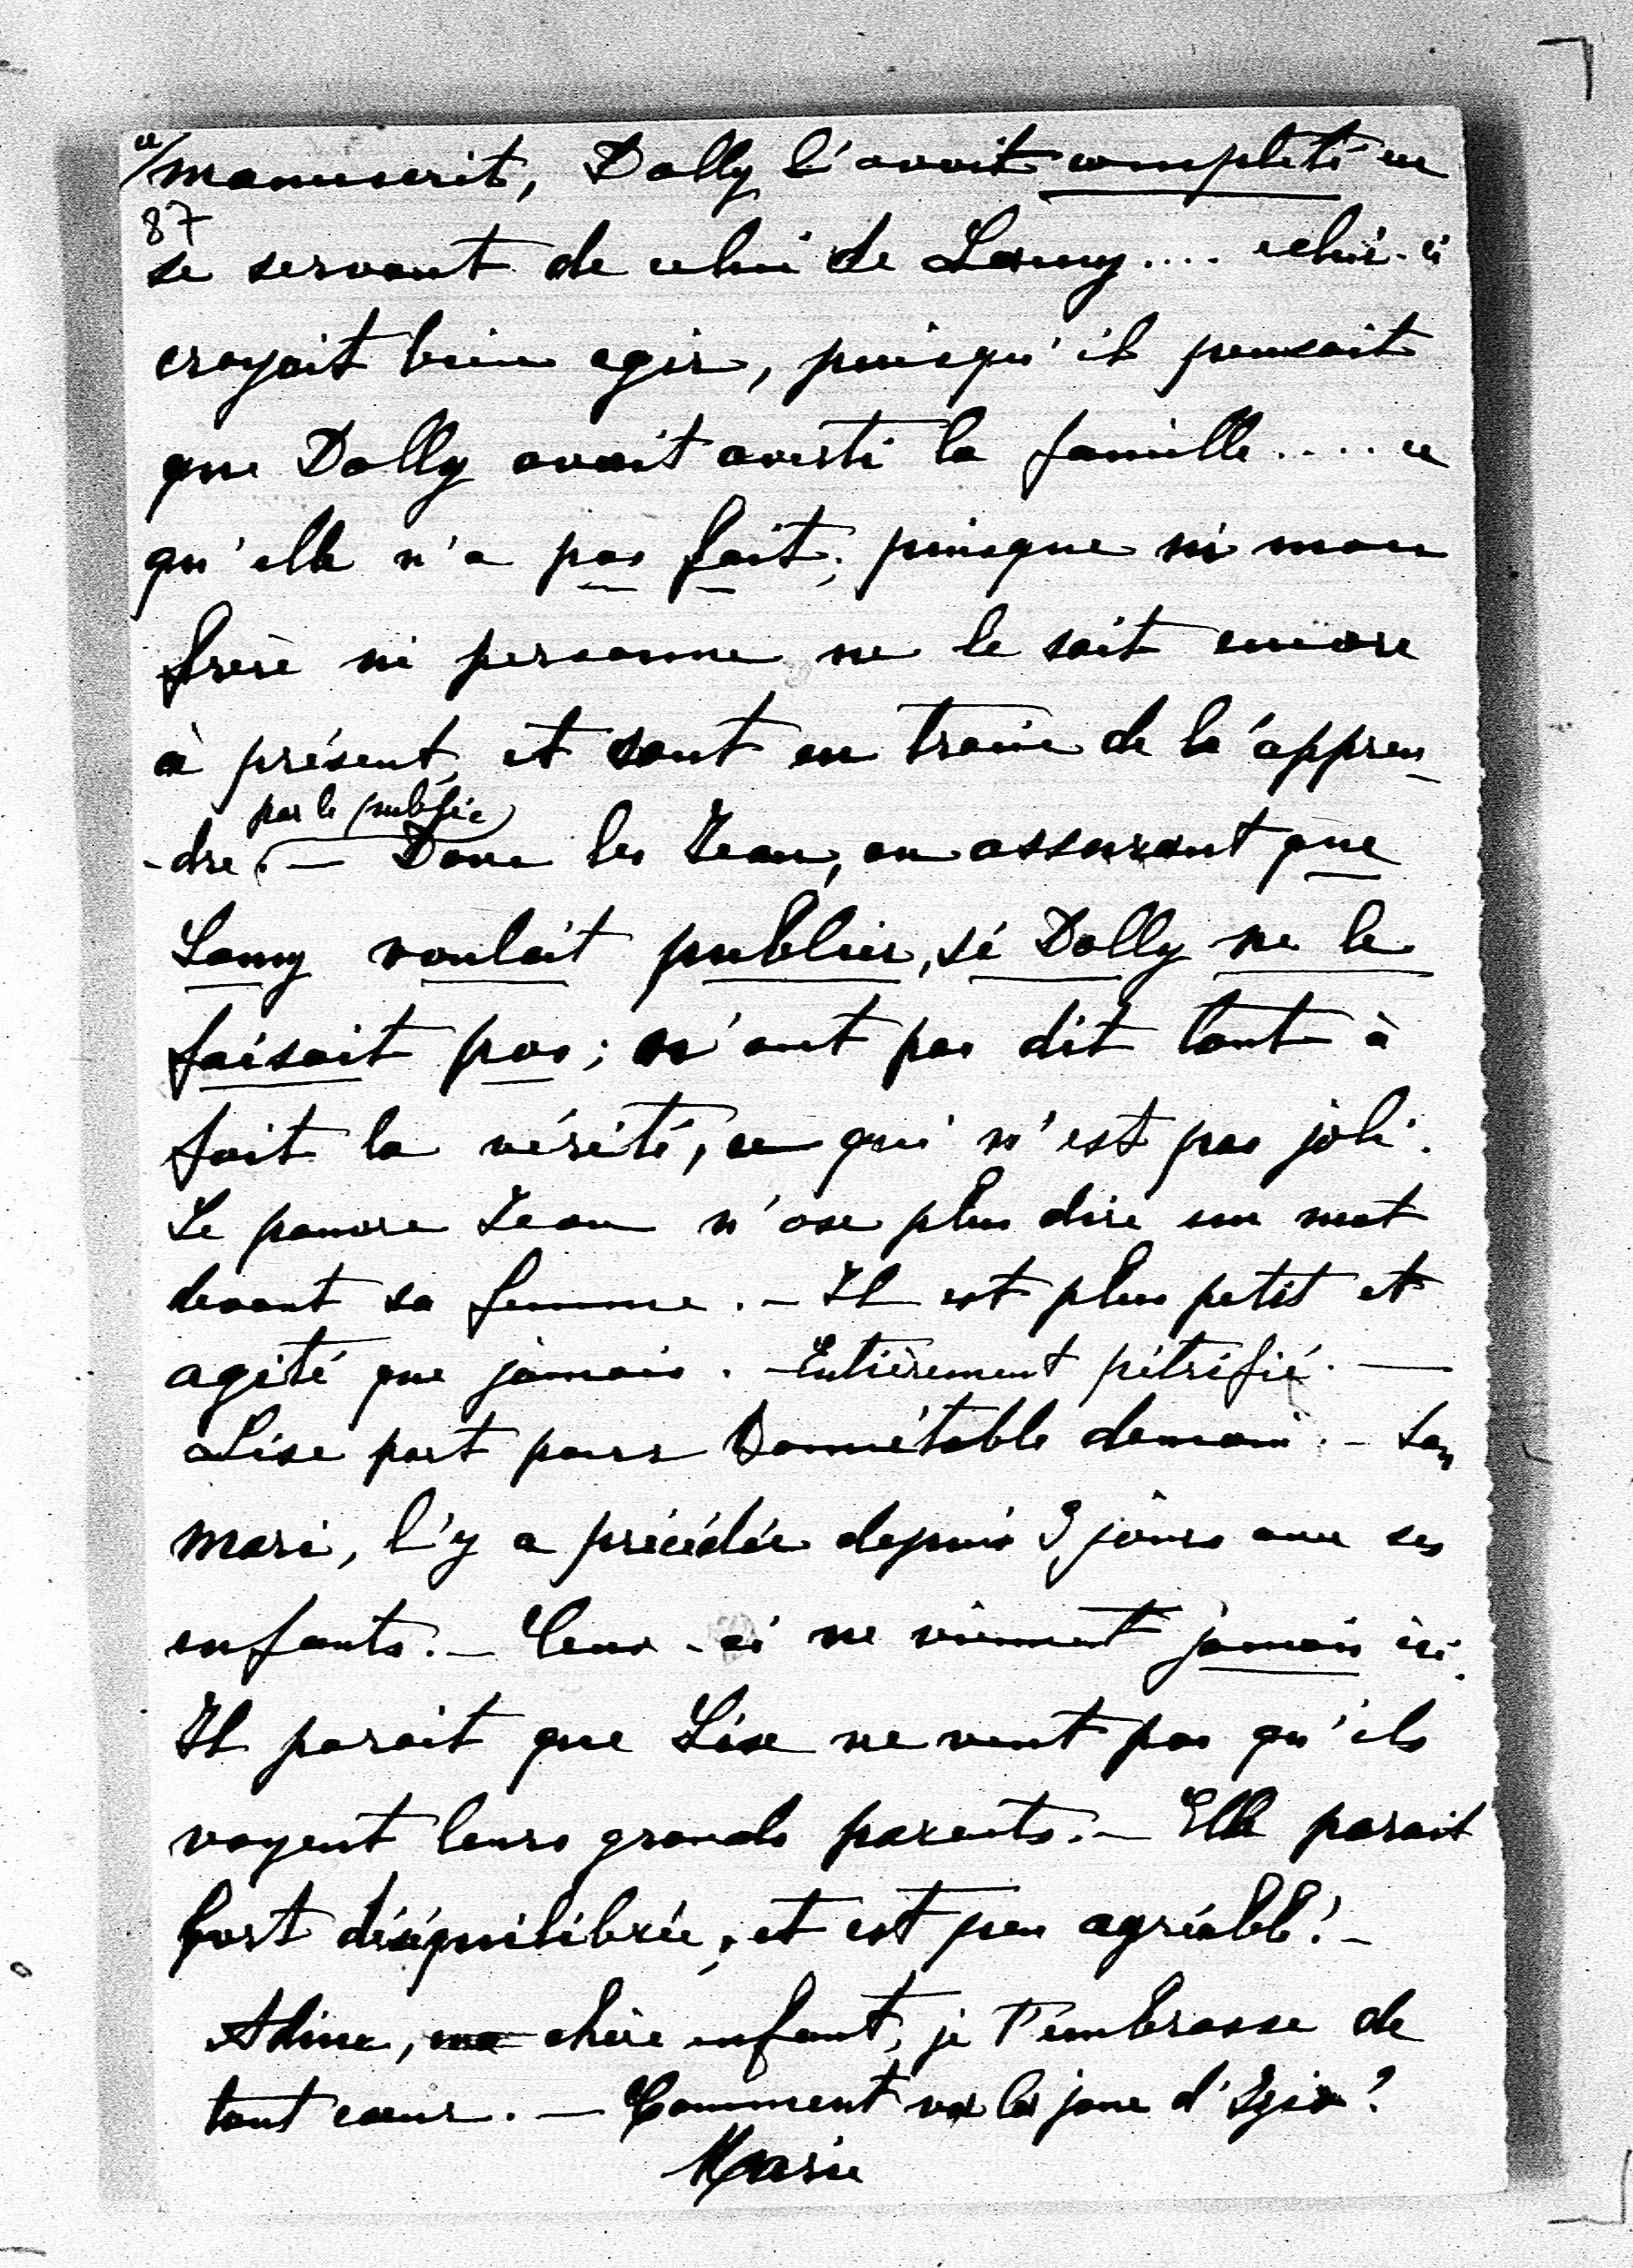 manuscrit, Dolly l'avait completé en
87
se servant de celui de Lamy.... celui-ci
croyait bien agir, puisqu'il pensait
que Dolly avait averti la famille.... ce
qu'elle n'a pas fait; puisque ni mon
frère ni personne ne le sait encore
à présent, et sont en train de l'appren-
par le public
-dre. — Donc les Jean, en assurant que
Lamy voulait publier, si Dolly ne le
faisait pas; n'ont pas dit tout à
fait la vérité, ce qui n'est pas joli.
Le pauvre Jean n'ose plus dire un mot
devant sa femme. - Il est plus petit et
agité que jamais. - Entièrement pétrifié. —
Lise part pour Bonnétable demain. - Son
mari, l'y a précédée depuis 3 jours avec ses
enfants. - Ceux-ci ne viennent jamais ici.
Il parait que Lise ne veut pas qu'ils
voyent leurs grands parents. - Elle parait
fort déséquilibrée, et est peu agréable! -
Adina, ma chère enfant, je t'embrasse de
tout cœur. — Comment va la joue d'
Marie